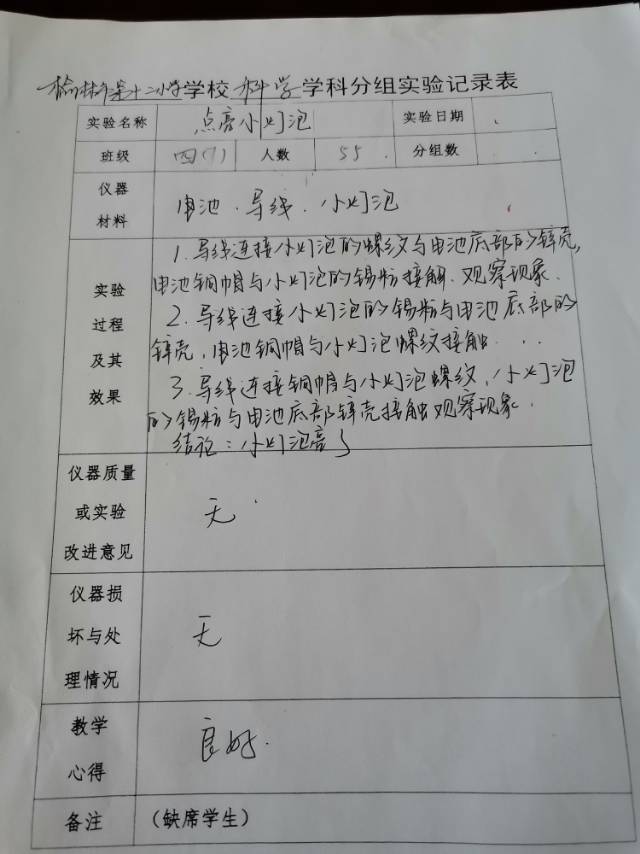 榆林市第十二小学学校科学学科分组实验记录表
实验名称 点亮小灯泡 实验日期
班级 四(1) 人数 55 分组数
仪器
材料
电池、导线、小灯泡
实验
过程
及其
效果
1.导线连接小灯泡的螺纹与电池底部的锌壳,
电池铜帽与小灯泡的锡粒接触、观察现象.
2.导线连接小灯泡的锡粒与电池底部的
锌壳,电池铜帽与小灯泡螺纹接触...
3.导线连接铜帽与小灯泡螺纹、小灯泡
的锡粒与电池底部锌壳接触观察现象.
结论:小灯泡亮了
仪器质量
或实验
改进意见
无
仪器损
坏与处
理情况
无
教学
心得
良好.
备注 (缺席学生)